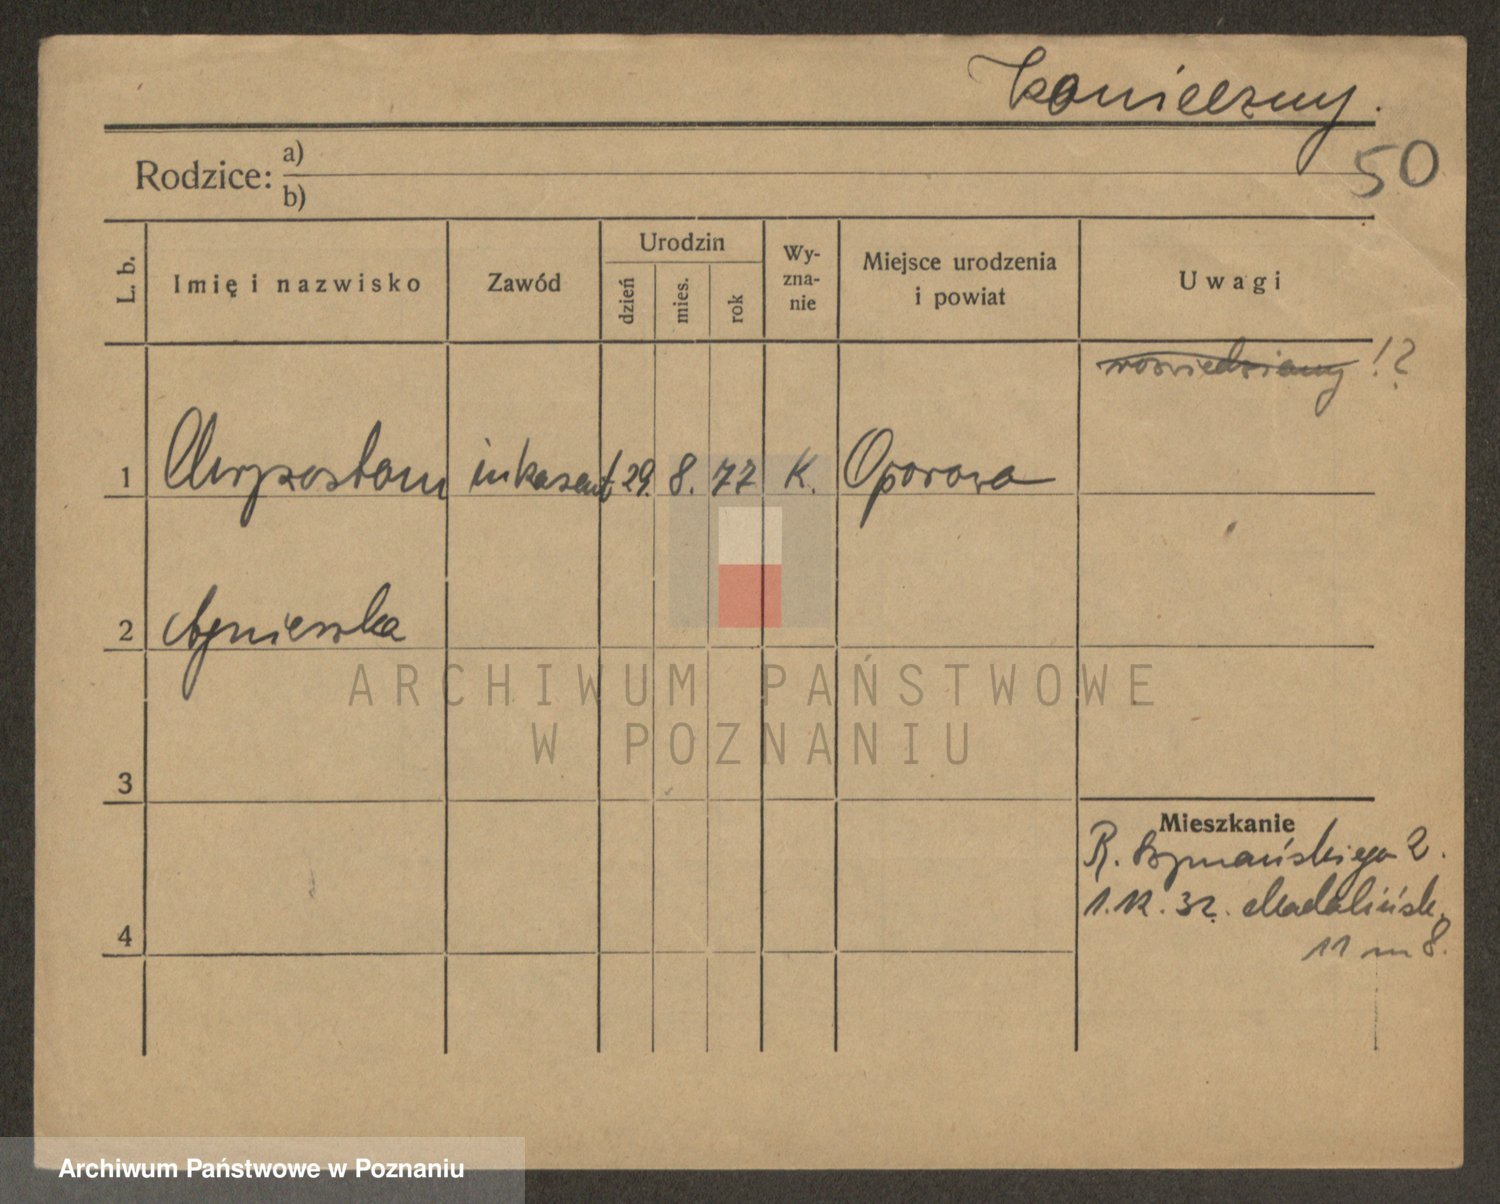 Konieczny.
50
Rodzice: a)
b)
L. b.
Imię i nazwisko
Zawód
Urodzin
dzień
mies.
rok
Wy-
zna-
nie
Miejsce urodzenia
i powiat
Uwagi
!?
1 Chryzostom inkasent 29. 8. 77 K. Oporowo
2 Agnieszka
3
4
Mieszkanie
R. Szymańskiego 2.
1.12.32. Madalińsk.
11 m 8.
ARCHIWUM PAŃSTWOWE
W POZNANIU
Archiwum Państwowe w Poznaniu